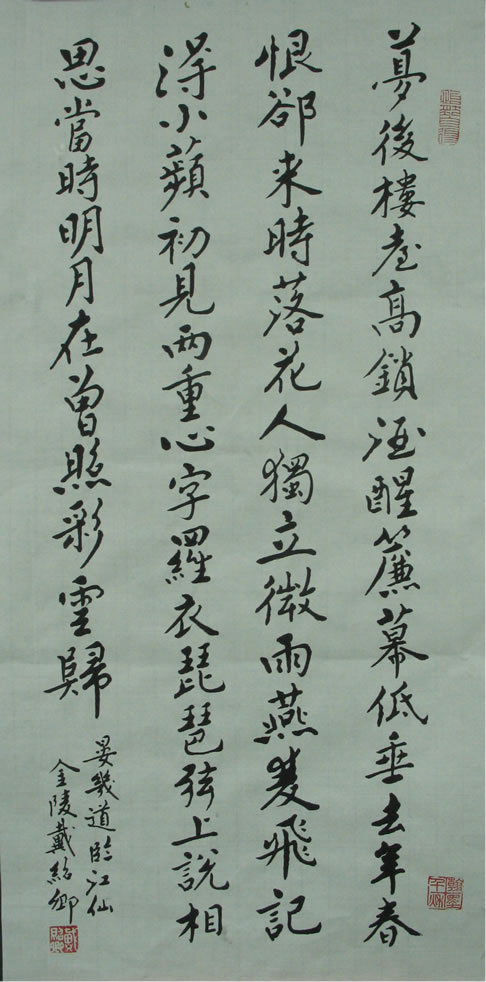 夢後樓臺高鎖酒醒簾幕低垂去年春
恨卻来時落花人獨立微雨燕雙飛記
得小蘋初見两重心字羅衣琵琶弦上說相
思當時明月在曾照彩雲歸
晏幾道臨江仙
金陵戴紹卿